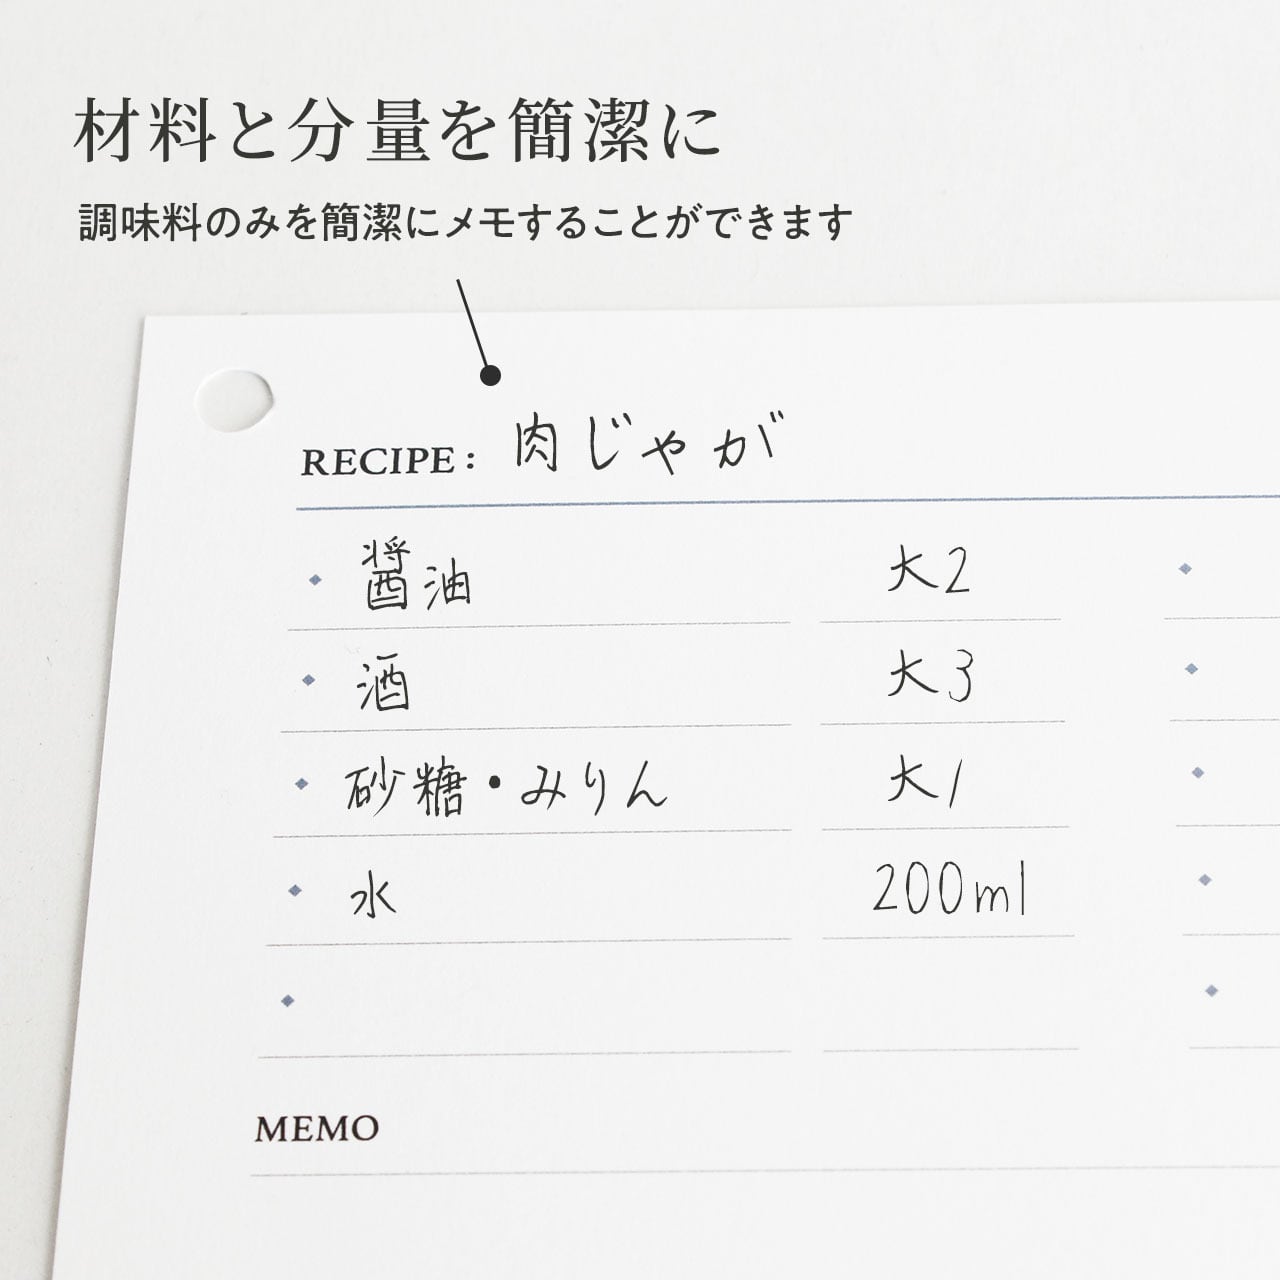 材料と分量を簡潔に
調味料のみを簡潔にメモすることができます
RECIPE: 肉じゃが
醤油 大2
酒 大3
砂糖・みりん 大1
水 200ml
MEMO